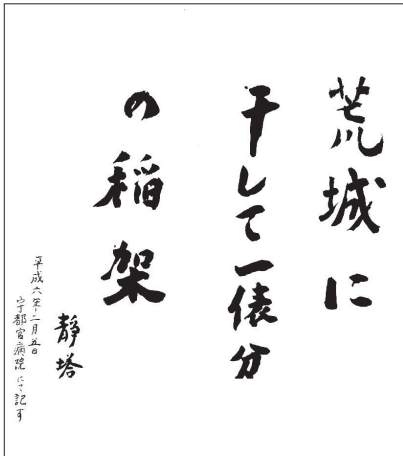 荒城に
干して一俵分
の稲架
静塔
平成六年十二月五日
宇都宮病院にて記す